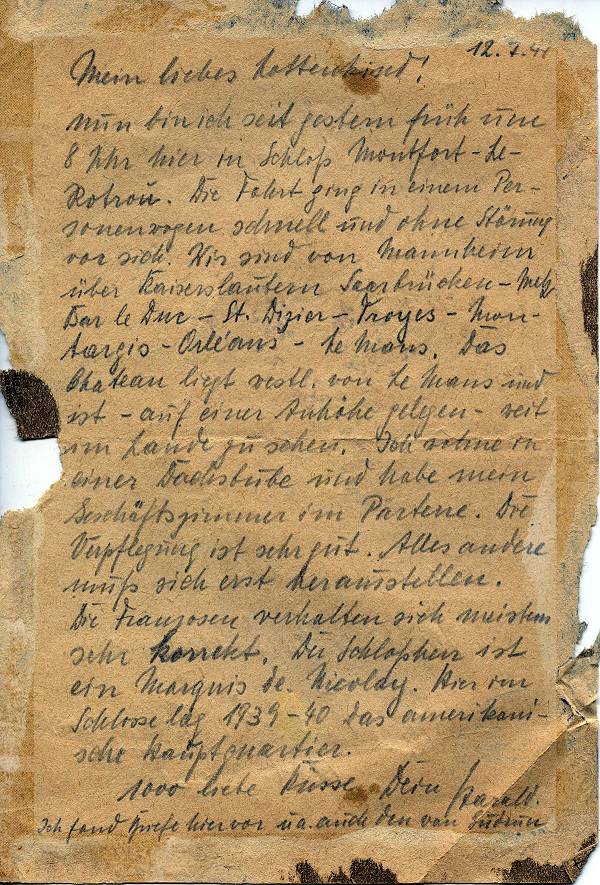 12.7.41
Mein liebes Lottenkind!
nun bin ich seit gestern früh um
8 Uhr hier in Schloß Montfort-Le-
Rotrou. Die Fahrt ging in einem Per-
sonenwagen schnell und ohne Störung
vor sich. Wir sind von Mannheim
über Kaiserslautern Saarbrücken - Metz
Bar le Duc - St. Dizier - Troyes - Mon-
targis - Orléans - Le Mans. Das
Chateau liegt westl. von Le Mans und
ist - auf einer Anhöhe gelegen - weit
im Lande zu sehen. Ich wohne in
einer Dachstube und habe mein
Geschäftszimmer im Parterre. Die
Verpflegung ist sehr gut. Alles andere
muß sich erst herausstellen.
Die Franzosen verhalten sich meistens
sehr korrekt. Der Schloßherr ist
ein Marquis de Nicolay. Hier im
Schlosse lag 1939-40 das amerikani-
sche Hauptquartier.
1000 liebe Küsse Dein Harald.
Ich fand Briefe hier vor u.a. auch den von Gudrun